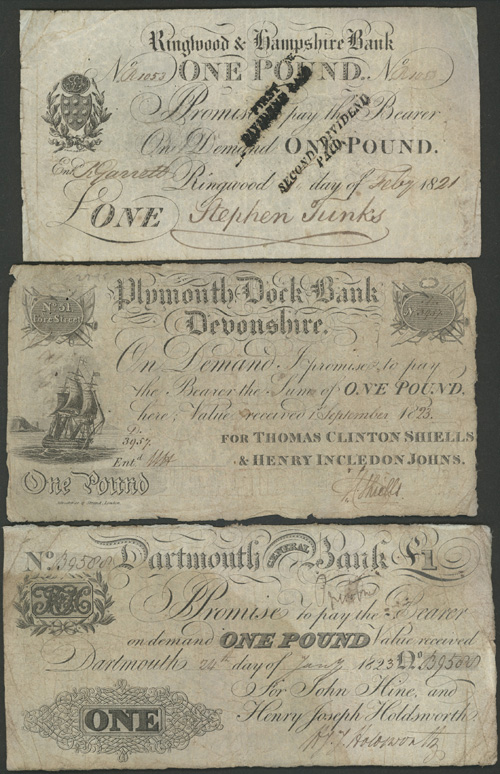 Ringwood & Hampshire Bank
No. 1053 ONE POUND. No. 1053
I Promise to pay the Bearer
On Demand ONE POUND.
FIRST DIVIDEND PAID
SECOND DIVIDEND PAID
Ringwood day of Feby 1821
Entd. Garrett
£ ONE Stephen Tunks
Plymouth Dock Bank
Devonshire.
No. 51
Fore Street
On Demand I promise to pay
the Bearer the Sum of ONE POUND,
here; Value received 1 September 1823.
3957.
FOR THOMAS CLINTON SHIELLS
Entd.
& HENRY INCLEDON JOHNS.
One Pound
T. C. Shiells
Dartmouth GENERAL Bank £1
No. B9508
I Promise to pay the Bearer
on demand ONE POUND Value received
Dartmouth 24th day of Jany 1823 No. B9508
For John Hine, and
Henry Joseph Holdsworth
ONE
H. J. Holdsworth